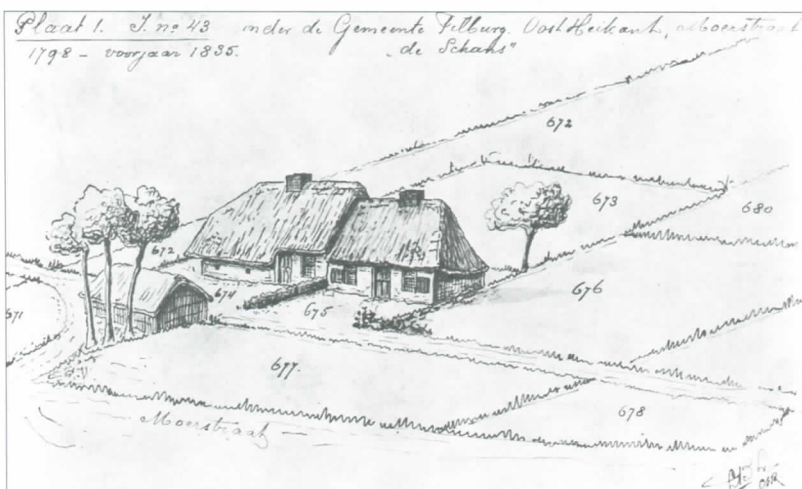 Plaat 1. J. no 43 onder de Gemeente Tilburg. Oost Heikant, Moerstraat
1798 - voorjaar 1835. "de Schans"
672
673
680
672
674
675
676
671
677.
678
Moerstraat